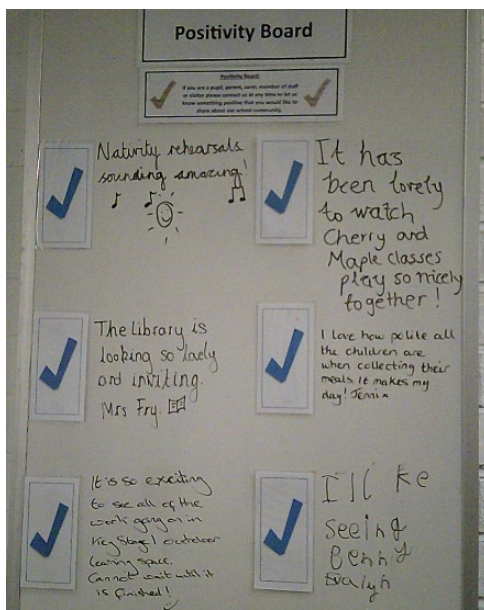 Positivity Board
Positivity Board:
If you are a pupil, parent, carer, member of staff
or visitor please contact us at any time to let us
know something positive that you would like to
share about our school community.
Nativity rehearsals
sounding amazing!
It has
been lovely
to watch
Cherry and
Maple classes
play so nicely
together!
The Library is
looking so
and inviting.
Mrs Fry.
I love how polite all
the children are
when collecting their
meals it makes my
day! Jenni x
It is so exciting
to see all of the
work going on in
Key Stage 1 outdoor
space.
Cannot wait until it
is finished!
I'll ke
seeing
Benny